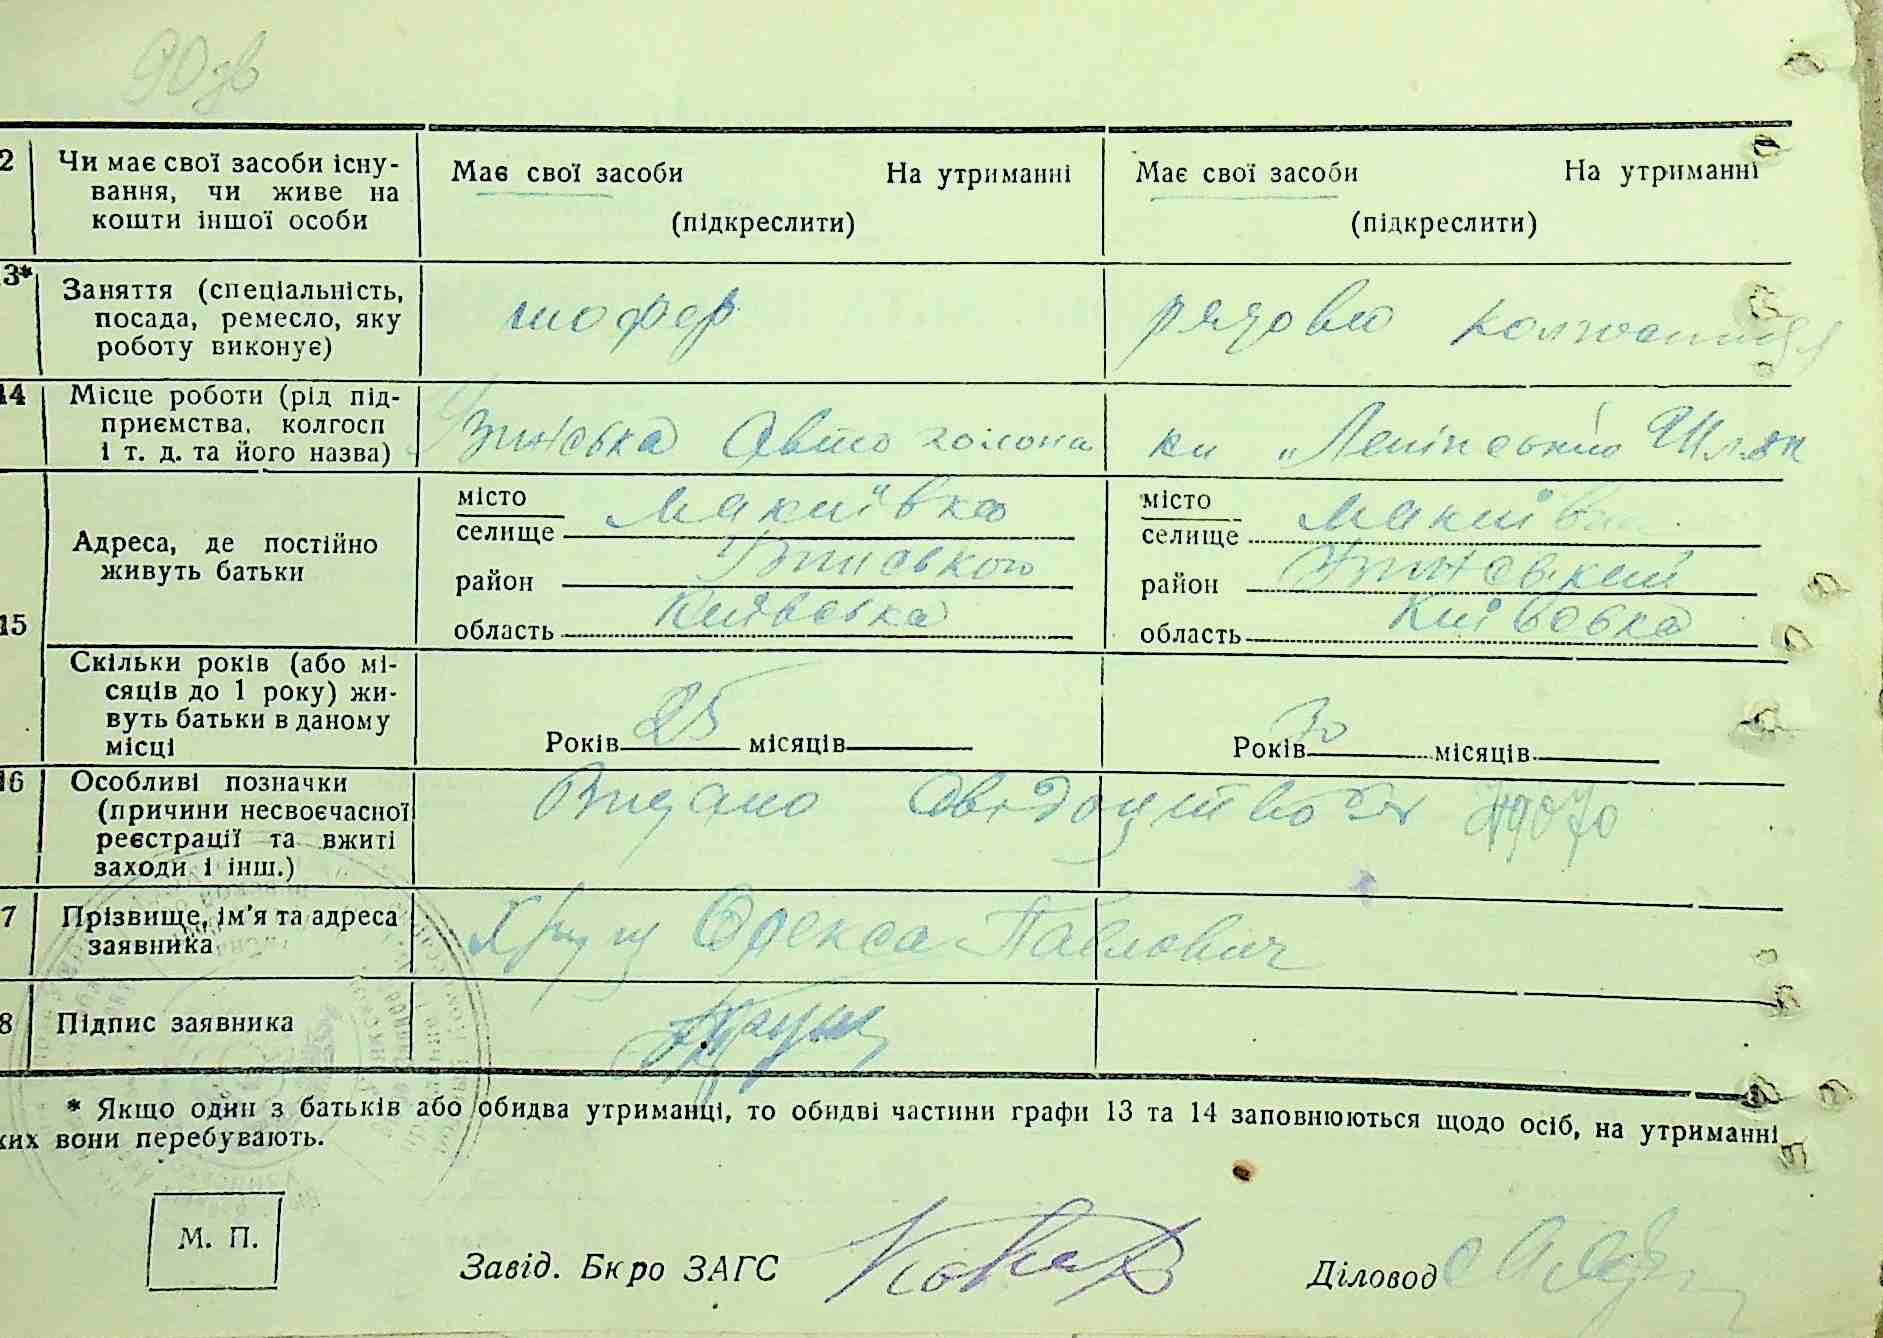 90 зв
2 Чи має свої засоби існу-
вання, чи живе на
кошти іншої особи
Має свої засоби На утриманні
(підкреслити)
Має свої засоби На утриманні
(підкреслити)
13* Заняття (спеціальність,
посада, ремесло, яку
роботу виконує)
шофер
рядова колгоспниця
14 Місце роботи (рід під-
приємства, колгосп
і т. д. та його назва)
Узинська Авто колона
к-п "Ленінський Шлях
15 Адреса, де постійно
живуть батьки
місто
селище Макиївка
район Узинського
область Київська
місто
селище Макиївка
район Узинський
область Київська
Скільки років (або мі-
сяців до 1 року) жи-
вуть батьки в даному
місці
Років 25 місяців
Років 30 місяців
16 Особливі позначки
(причини несвоєчасної
реєстрації та вжиті
заходи і інш.)
Видано свідоцтво
7 Прізвище, ім'я та адреса
заявника
Олекса Павлович
8 Підпис заявника
* Якщо один з батьків або обидва утриманці, то обидві частини графи 13 та 14 заповнюються щодо осіб, на утриманні
ких вони перебувають.
М. П.
Завід. Бюро ЗАГС
Діловод